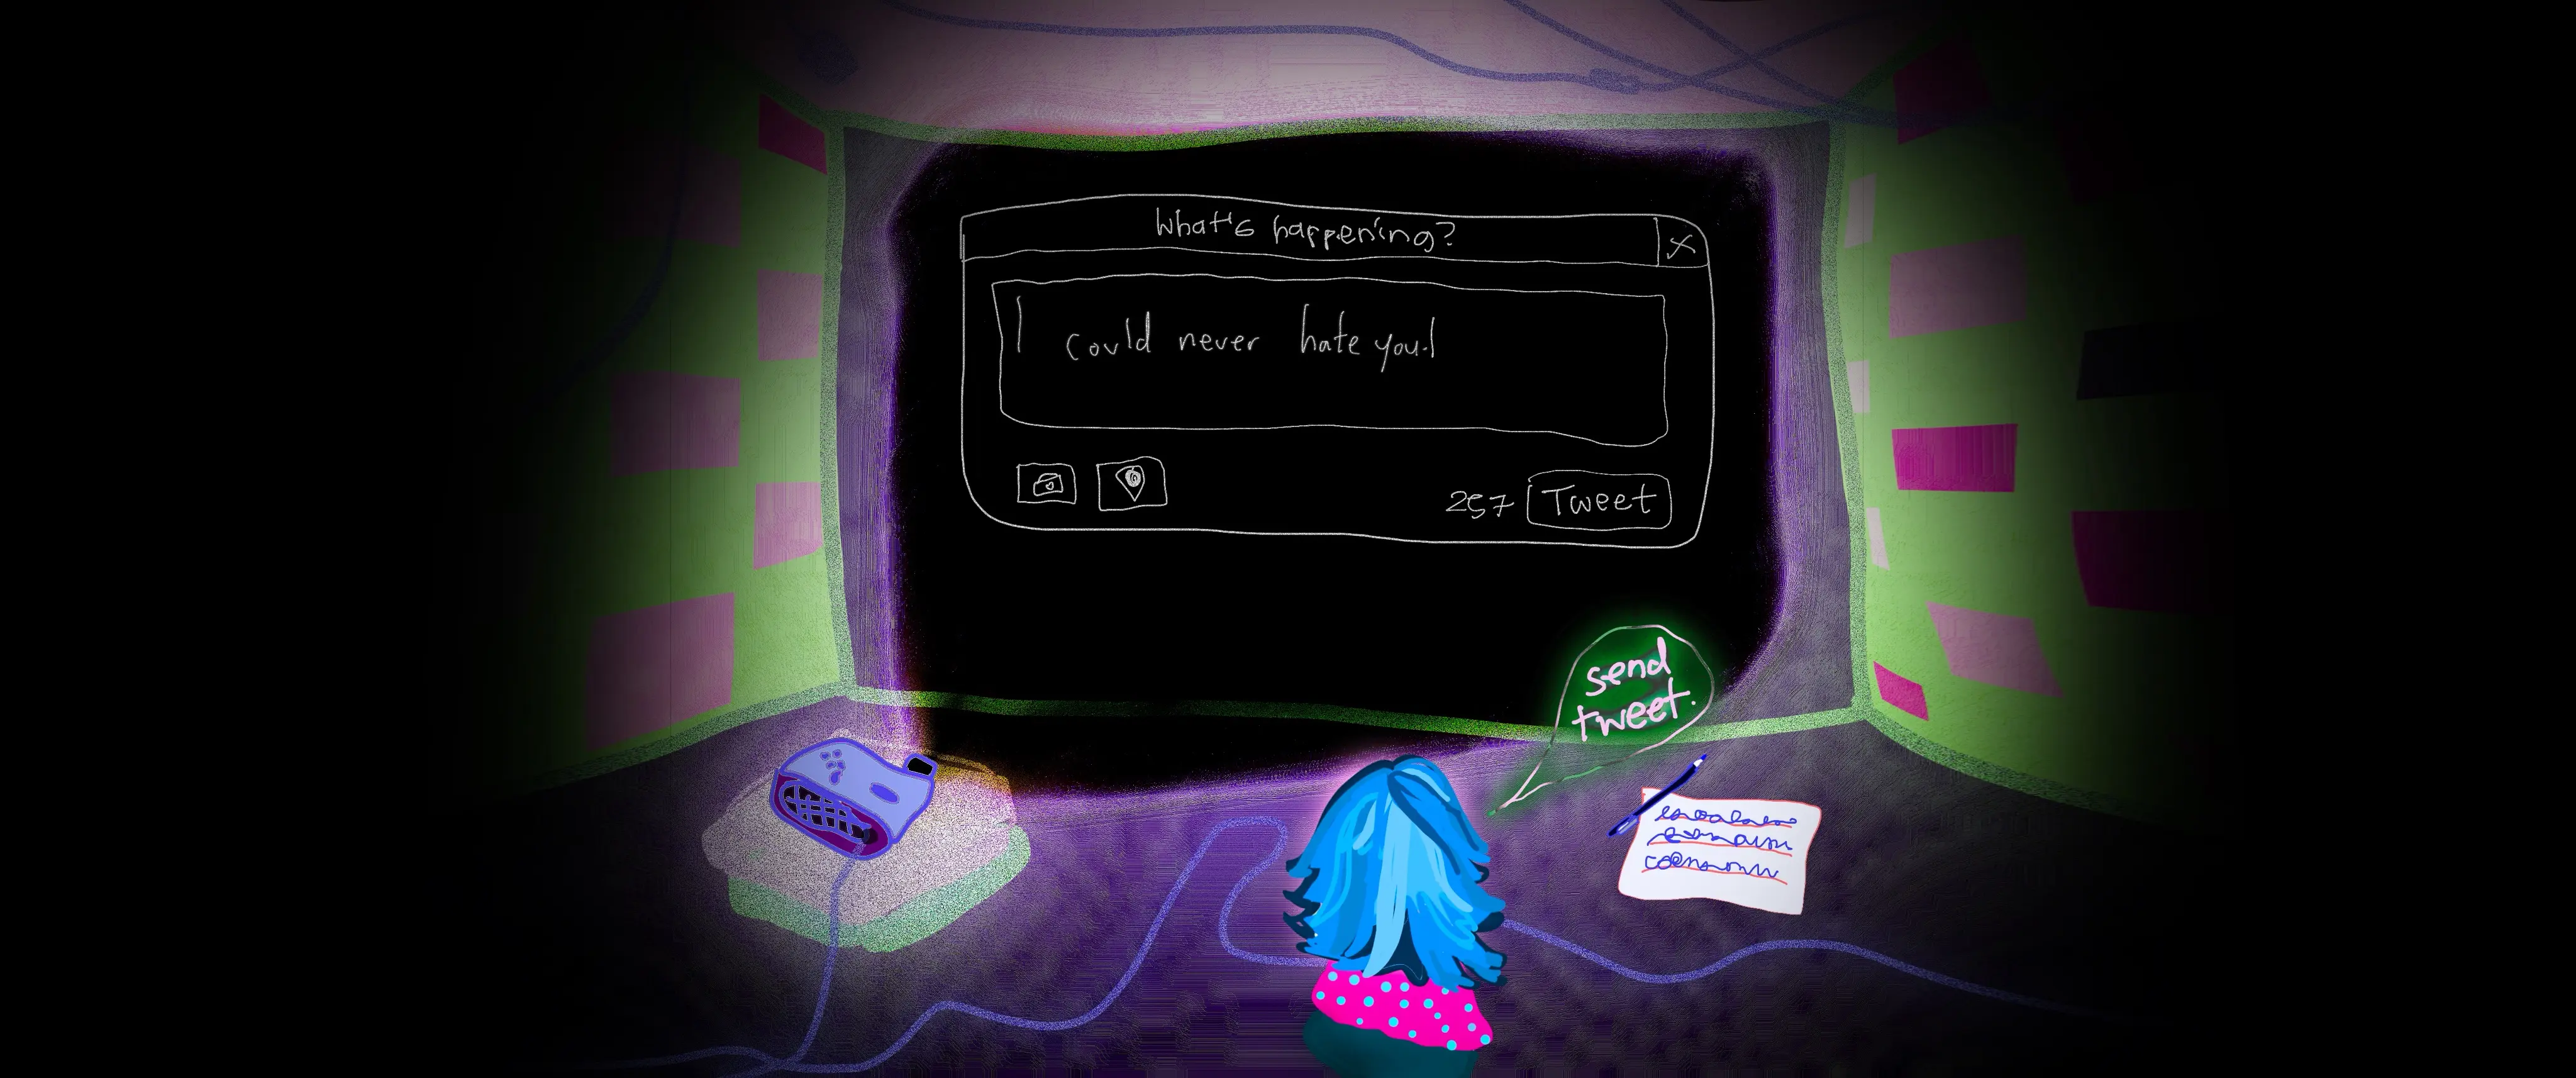 What's happening?
X
I could never hate you.
257 Tweet
send
tweet.